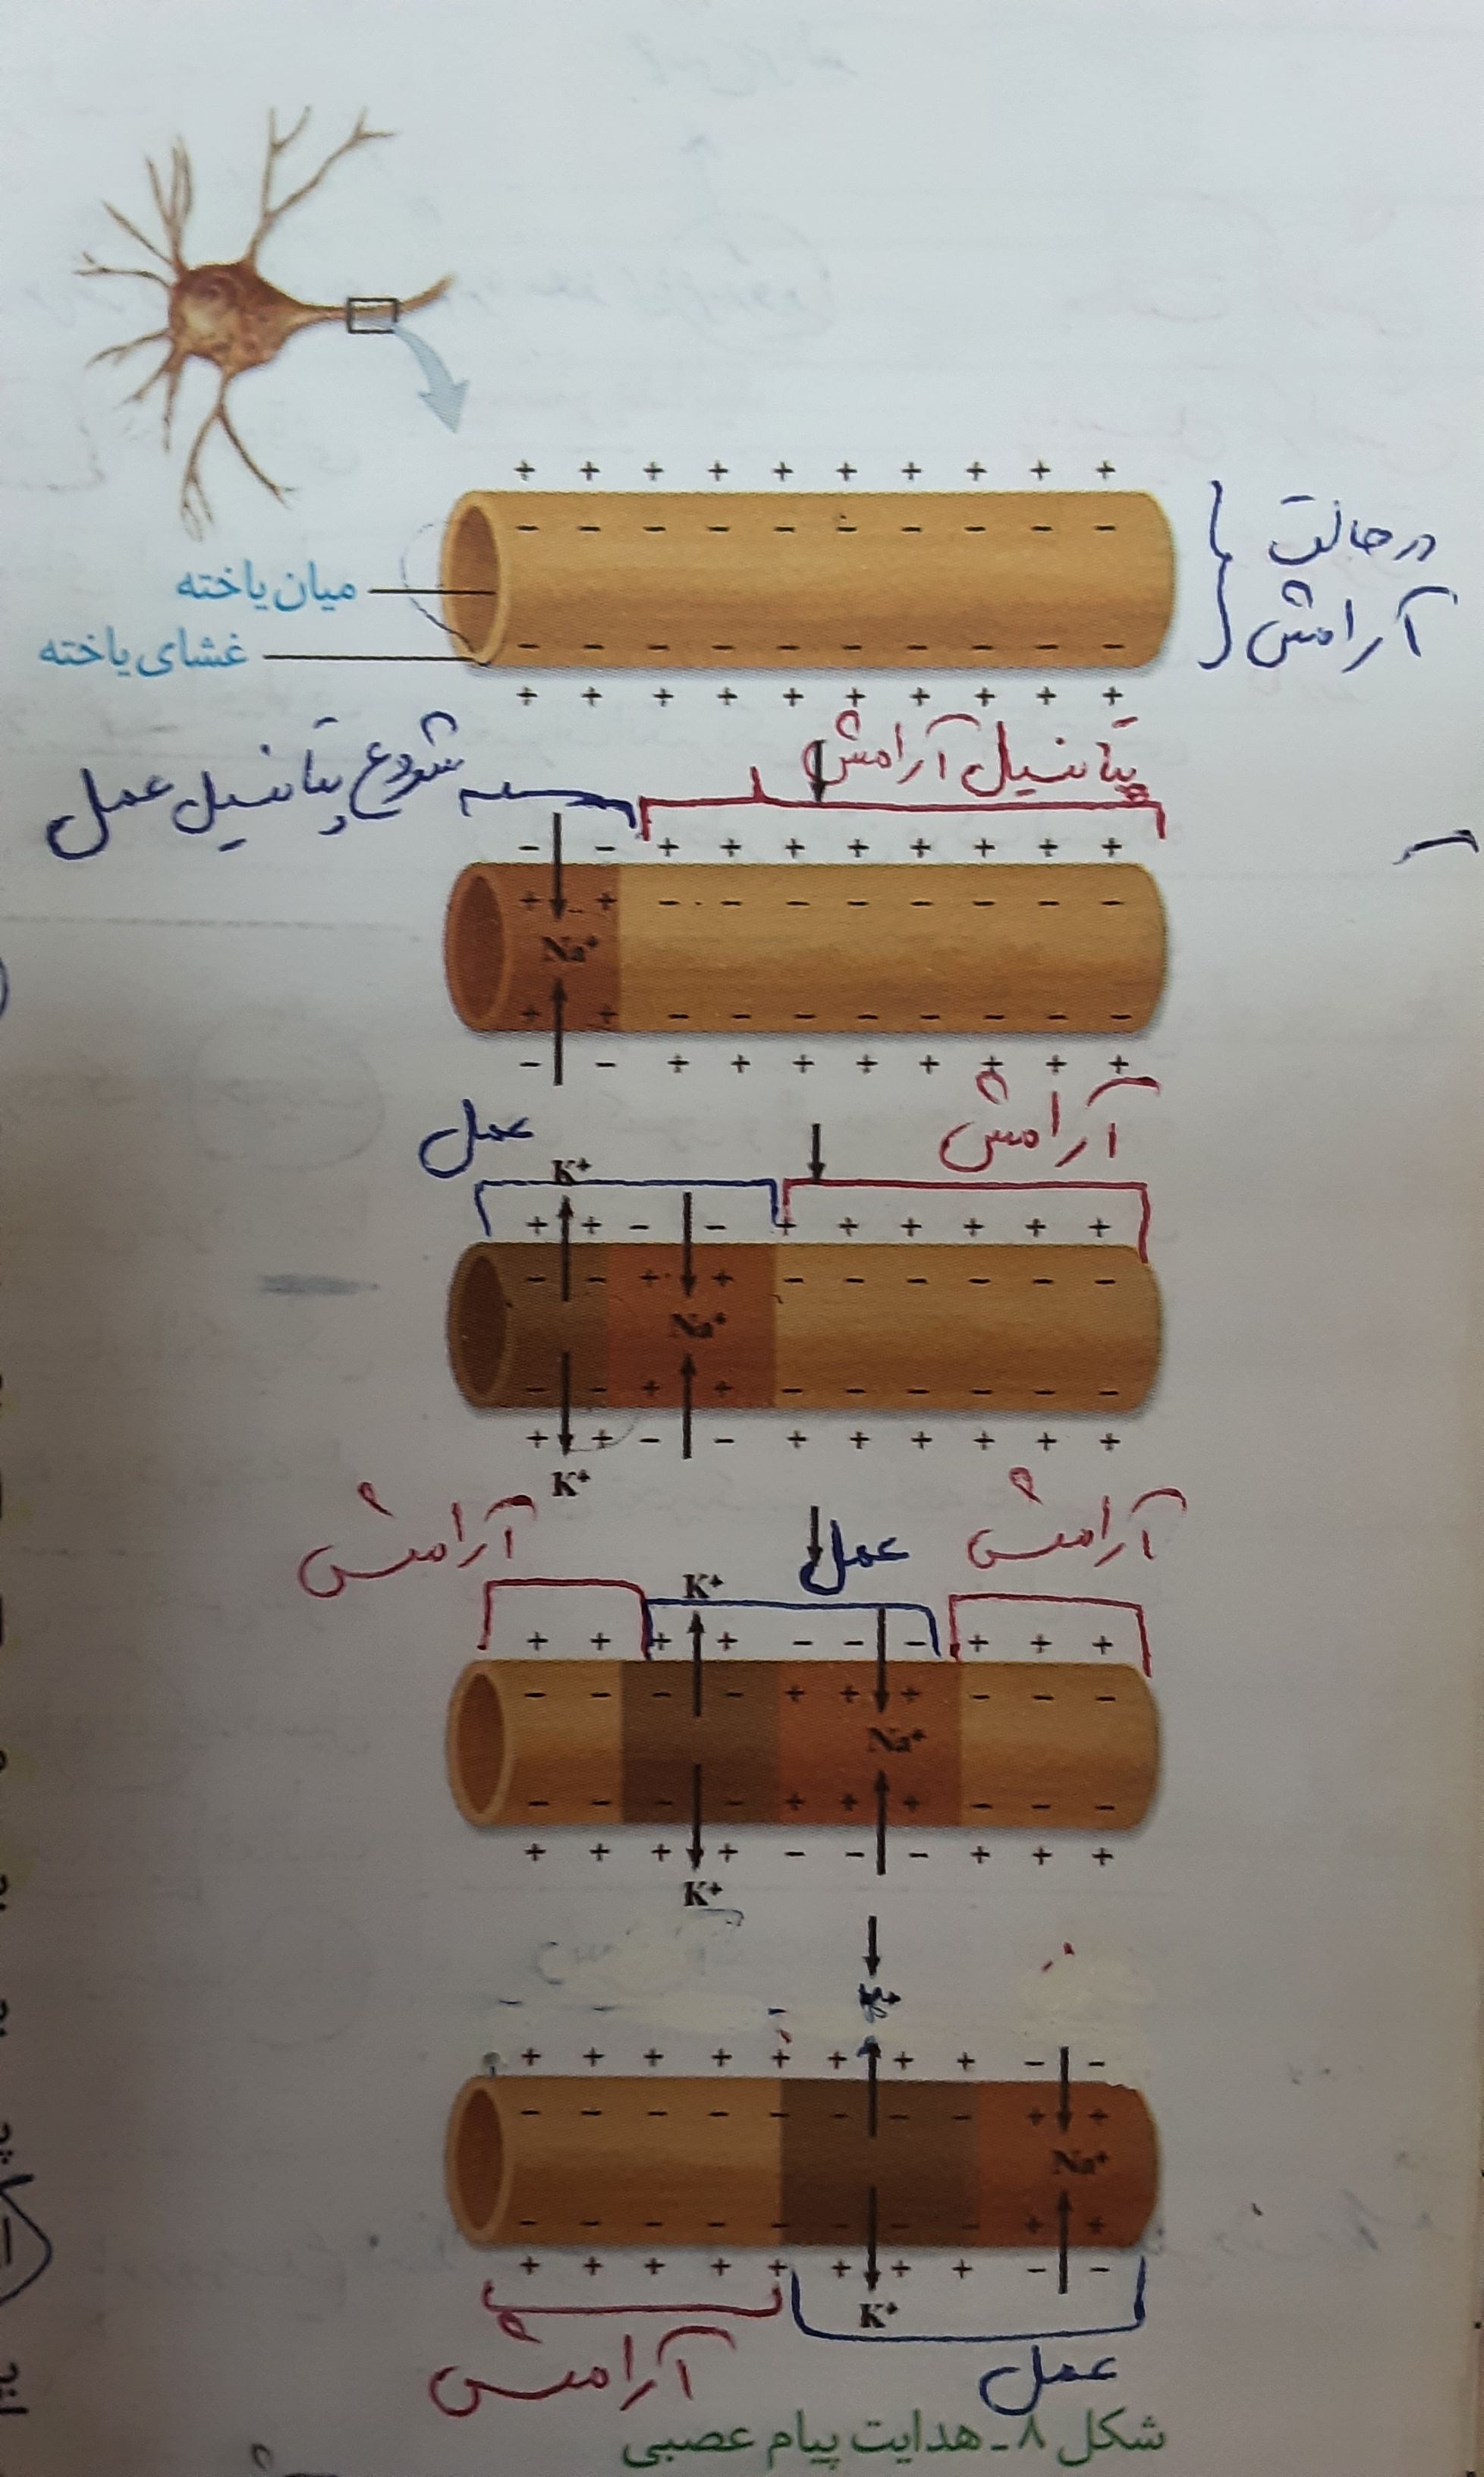 + + + + + + + + + +
- - - - - - - - - -
در حالت
آرامش
میان یاخته
غشای یاخته
- - - - - - - - - -
+ + + + + + + + + +
پتانسیل آرامش
شروع پتانسیل عمل
- - + + + + + + + +
+ + - - - - - - - -
Na+
+ + - - - - - - - -
- - + + + + + + + +
آرامش
عمل
K+
+ + - - + + + + + +
- - + + - - - - - -
Na+
- - + + - - - - - -
+ + - - + + + + + +
K+
آرامش
عمل
آرامش
K+
+ + + + - - - + + +
- - - - + + + - - -
Na+
- - - - + + + - - -
+ + + + - - - + + +
K+
K+
+ + + + + + + + - -
- - - - - - - - + +
Na+
- - - - - - - - + +
+ + + + + + + + - -
K+
آرامش
عمل
شکل ۸ ـ هدایت پیام عصبی